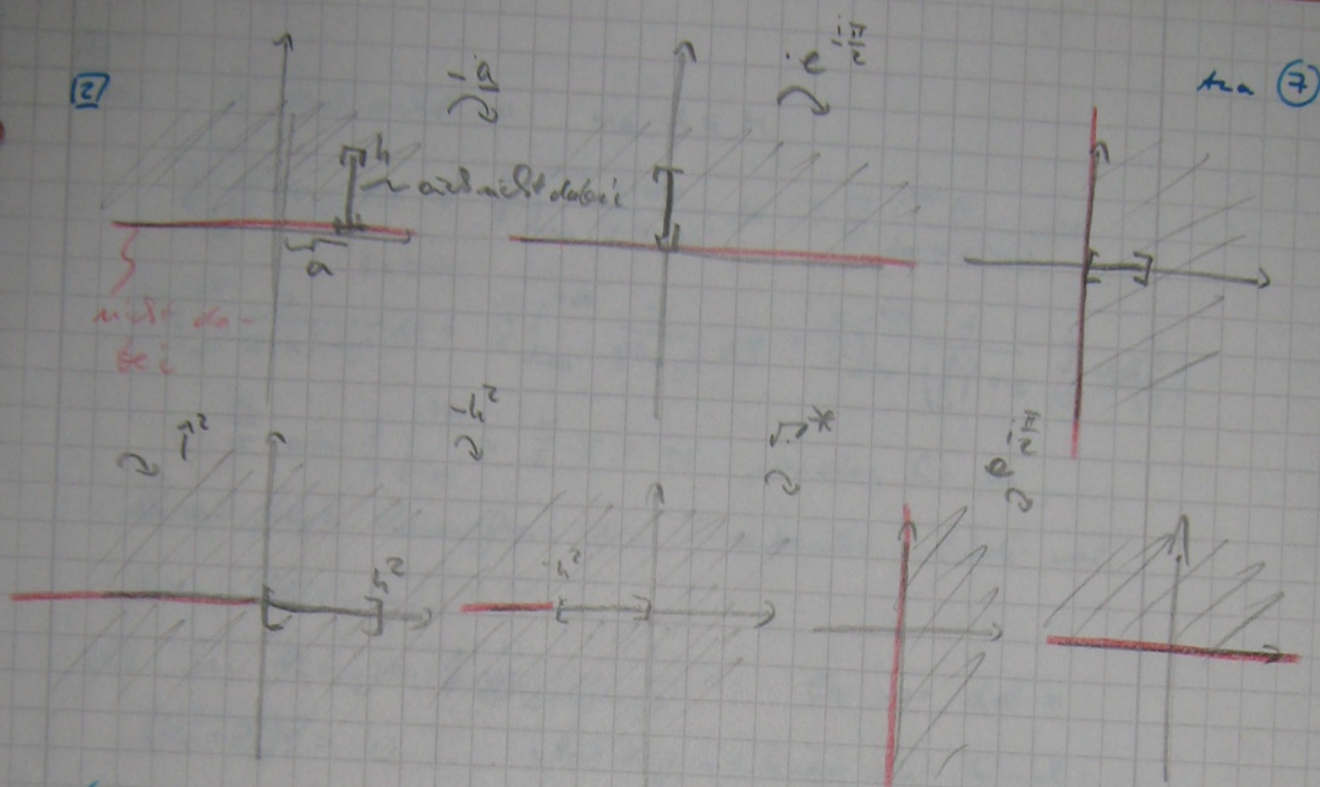 2
-a
·e^{-iπ/2}
Ana 7
h
auch nicht dabei
a
nicht da-
bei
↑²
-h²
√·*
e^{iπ/2}
h²
-h²